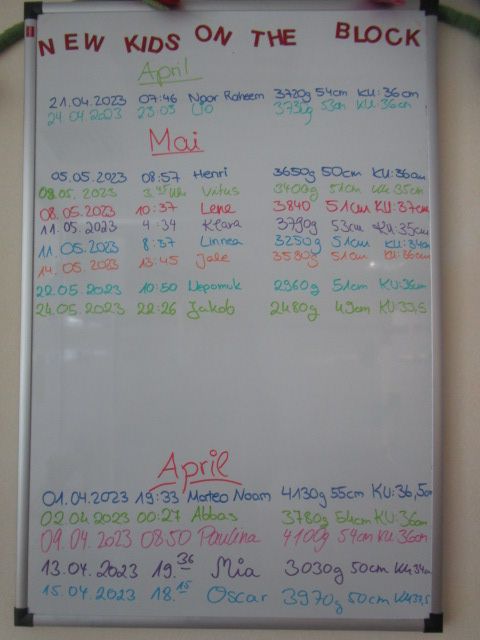 NEW KIDS ON THE BLOCK
April
21.04.2023 07:46 Noor Raheem 3720g 54cm KU: 36cm
24.04.2023 23:03 3730g 53cm KU: 36cm
Mai
05.05.2023 08:57 Henri 3650g 50cm KU: 36cm
08.05.2023 Vitus 3400g 51cm KU 35cm
08.05.2023 10:37 Lene 3840 51cm KU: 37cm
11.05.2023 4:34 Klara 3790g 53cm KU: 35cm
11.05.2023 8:37 Linnea 3250g 51cm KU: 34cm
14.05.2023 13:45 Jale 3580g 51cm KU: 36cm
22.05.2023 10:50 Nepomuk 2960g 51cm KU: 36cm
24.05.2023 22:26 Jakob 2480g 49cm KU: 33,5
April
01.04.2023 19:33 Mateo Noam 4130g 55cm KU: 36,5cm
02.04.2023 00:27 Abbas 3780g 54cm KU: 36cm
09.04.2023 08:50 Paulina 4100g 54cm KU: 36cm
13.04.2023 19.36 Mia 3030g 50cm KU: 34cm
15.04.2023 18.15 Oscar 3970g 50cm